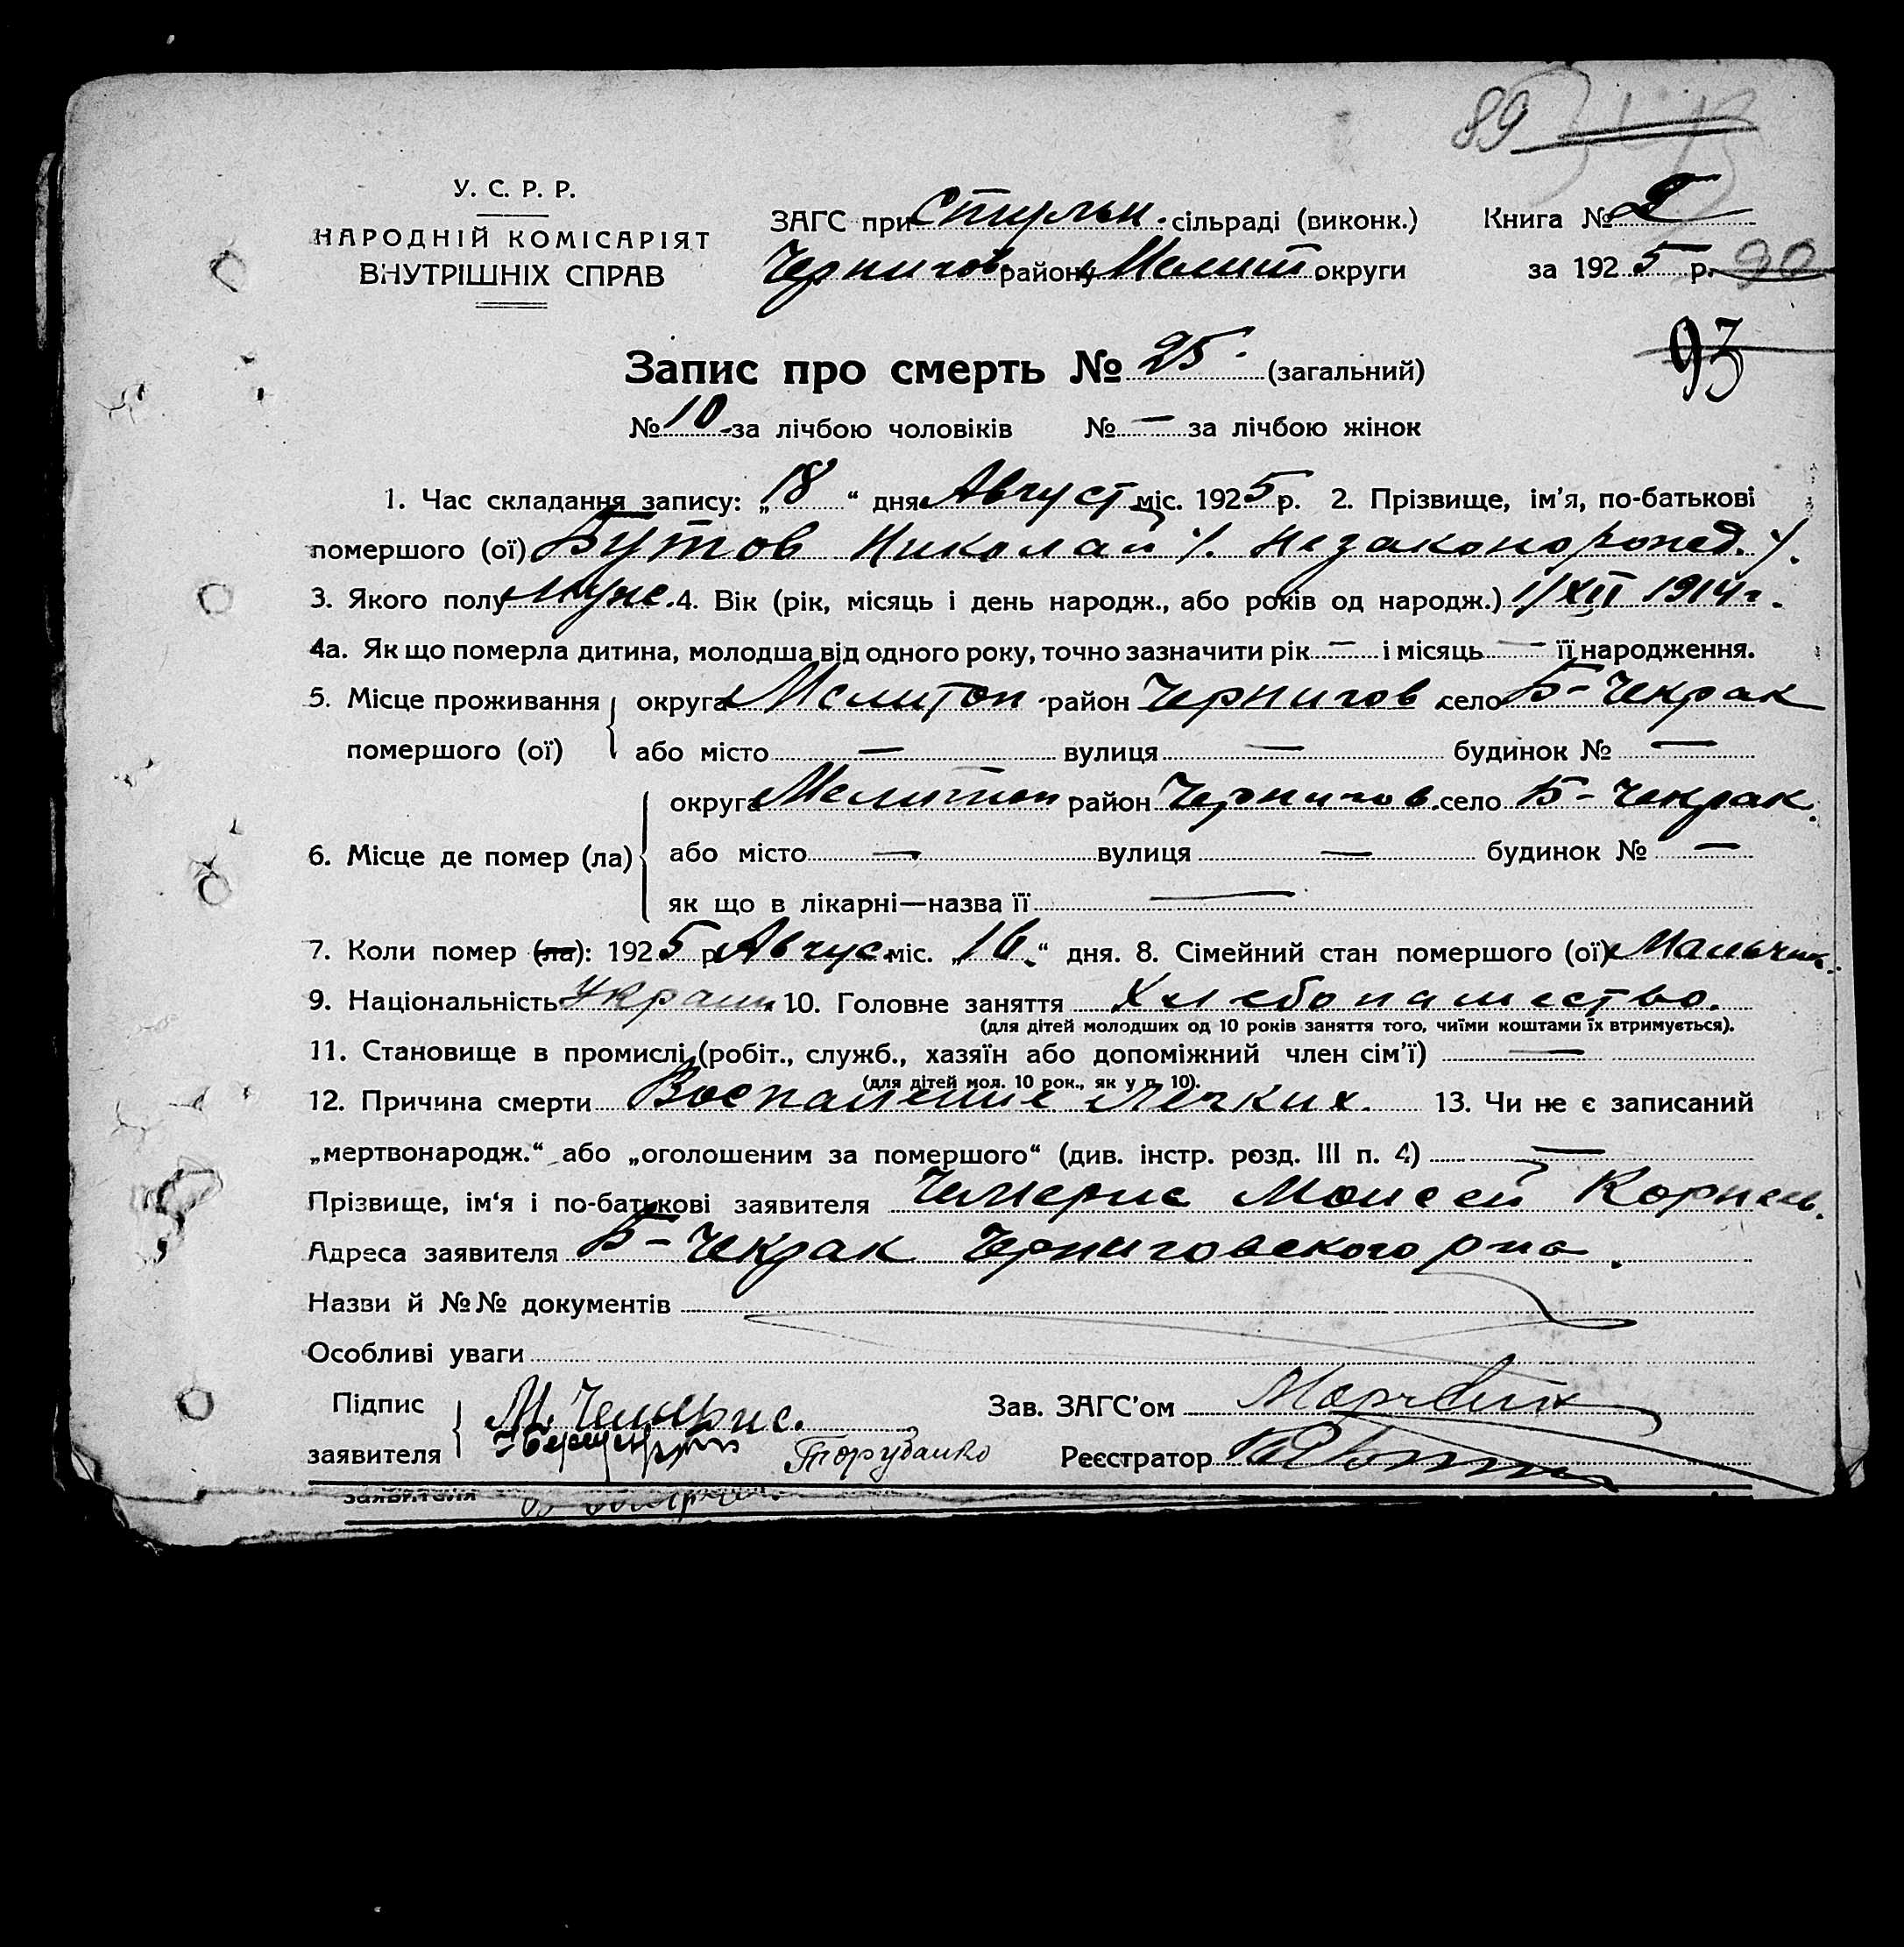 89
У. С. Р. Р.
НАРОДНІЙ КОМІСАРІЯТ
ВНУТРІШНІХ СПРАВ
ЗАГС при сільраді (виконк.) Книга № I
Чернигов району Мелит округи за 1925 р. 90
93
Запис про смерть № 25 (загальний)
№ 10 за лічбою чоловіків № — за лічбою жінок
1. Час складання запису: „18“ дня Август міс. 1925 р. 2. Прізвище, ім’я, по-батькові
помершого (ої) Бутов Николай /. Незаконорожед. /.
3. Якого полу Муже. 4. Вік (рік, місяць і день народж., або років од народж.) 1/XII 1914 г.
4а. Як що померла дитина, молодша від одного року, точно зазначити рік — і місяць — її народження.
5. Місце проживання округа Мелитоп район Чернигов село Б-Чекрак
помершого (ої) або місто — вулиця — будинок № —
округа Мелитоп район Чернигов. село Б-Чекрак.
6. Місце де помер (ла) або місто — вулиця — будинок № —
як що в лікарні—назва її —
7. Коли помер (ла): 1925 р. Авгус міс. „16“ дня. 8. Сімейний стан помершого (ої) Мальчик.
9. Національність Украин. 10. Головне заняття Хлебопашество.
(для дітей молодших од 10 років заняття того, чиїми коштами їх втримується).
11. Становище в промислі (робіт., служб., хазяїн або допоміжний член сім’ї) —
(для дітей мол. 10 рок., як у п. 10).
12. Причина смерти Воспаление Легких. 13. Чи не є записаний
„мертвонародж.“ або „оголошеним за помершого“ (див. інстр. розд. III п. 4) —
Прізвище, ім‘я і по-батькові заявителя Чемерис Моисей Корнеев.
Адреса заявителя Б-Чекрак Черниговского р-на.
Назви й №№ документів
Особливі уваги
Підпис М. Чемерис. Зав. ЗАГС’ом
заявителя Реєстратор
заявителя